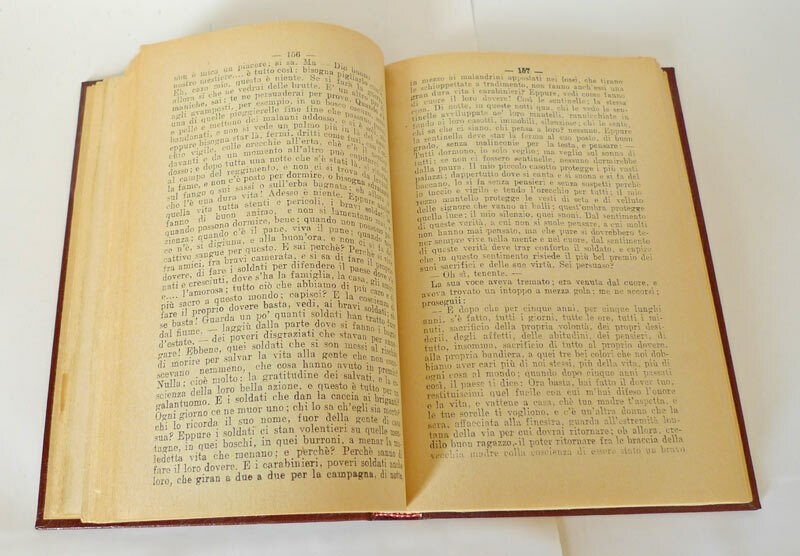 — 156 —
non è mica un piacere; si sa. Ma — Dio buono —
nostro mestiere... è tutto così: bisogna pigliarlo
Eh, caro mio, questo è niente. Se si farà la
allora si che ne vedrai delle brutte. E' un altro
maniche, sai; te ne persuaderai per prova. Quando
agli avamposti, per esempio, in un bosco, di notte,
di quelle pioggerelle fine fine che passano
e pelle e mettono dei malanni addosso, e il
bastionati, e non si vede un palmo più in là del
eppure bisogna star là, fermi, dritti come
che, vigile, colle orecchie all'erta, chè c'è il
davanti e da un momento all'altro può capitarci
dosso; e dopo tutta una notte che s'è stati là,
al campo del reggimento, e non ci si trova da
la fame, e non c'è posto per dormire, o bisogna sdraiarsi
sul fango o sui sassi o sull'erba bagnata; oh allora
che l'è una dura vita! Adesso è niente. Eppure in
quella vita tutta stenti e pericoli, i bravi soldati
fanno di buon animo, e non si lamentano; e
quando possono dormire, bene; quando non possono,
zienza; quando c'è il pane, viva il pane; quando
ce n'è, si digiuna, e alla buon'ora, e non ci si fa
cattivo sangue per questo. E sai perchè? Perchè si è
fra amici, fra bravi camerata, e si sa di fare il proprio
dovere, di fare i soldati per difendere il paese dove si è
nati e cresciuti, dove s'ha la famiglia, la casa, gli amici
e.... l'amorosa; tutto ciò che abbiamo di più caro e di
più sacro a questo mondo; capisci? E la coscienza di
fare il proprio dovere basta, vedi, ai bravi soldati;
se basta! Guarda un po' quanti soldati han tratto
dal fiume, — laggiù dalla parte dove si fanno i bagni
d'estate, — dei poveri disgraziati che stavan per annegare!
gare! Ebbene, quei soldati che si son messi al rischio
di morire per salvar la vita alla gente che non conoscevano
scevano nemmeno, che cosa hanno avuto in premio?
Nulla; cioè molto: la gratitudine dei salvati, e la coscienza
scienza della loro bella azione, e questo è tutto per un
galantuomo. E i soldati che dan la caccia ai briganti?
Ogni giorno ce ne muor uno; chi lo sa ch'egli sia morto?
chi lo ricorda il suo nome, fuor della gente di casa
sua? Eppure i soldati ci stan volentieri su quelle montagne,
tagne, in quei boschi, in quei burroni, a menar la maledetta
ledetta vita che menano; e perchè? Perchè sanno di
fare il loro dovere. E i carabinieri, poveri soldati anche
loro, che giran a due a due per la campagna, di notte,
— 157 —
in mezzo ai malandrini appostati nei fossi, che tirano
le schioppettate a tradimento, non fanno anch'essi una
gran dura vita i carabinieri? Eppure, vedi come fanno
di cuore il loro dovere! Così le sentinelle; la stessa
cosa. Di notte, in queste notti qua, chi le vede le povere
sentinelle avviluppate ne' loro mantelli, rannicchiate in
fondo ai loro casotti, immobili, silenziose; chi le sente,
chi sa che ci siano, chi pensa a loro? nessuno. Eppure
la sentinella deve star là ferma al suo posto, di buon
grado, senza malinconie per la testa, e pensare: —
Tutti dormono, io solo veglio; ma veglio sul sonno di
tutti; se non ci fossero sentinelle, nessuno dormirebbe
dalla paura. Il mio piccolo casotto protegge i più vasti
palazzi; dappertutto dove si canta e si suona e si fa del
baccano, lo si fa senza pensieri e senza sospetti perchè
io taccio e vigilo e tendo l'orecchio per tutti. Il mio
rozzo mantello protegge le vesti di seta e di velluto
delle signore che vanno ai balli; quest'ombra protegge
quella luce; il mio silenzio, quei suoni. Dal sentimento
di queste verità, a cui non si suole pensare, a cui molti
non hanno mai pensato, ma che pure si dovrebbero tener
sempre vive nella mente e nel cuore, dal sentimento
di queste verità deve trar conforto il soldato, e capire
che in questo sentimento risiede il più bel premio dei
suoi sacrifici e delle sue virtù. Sei persuaso?
— Oh sì, tenente. —
La sua voce aveva tremato; era venuta dal cuore, e
aveva trovato un intoppo a mezza gola; me ne accorsi;
proseguii:
— E dopo che per cinque anni, per cinque lunghi
anni, s'è fatto, tutti i giorni, tutte le ore, tutti i minuti,
sacrificio della propria volontà, dei propri desiderii,
degli affetti, delle abitudini, dei pensieri, di
tutto, insomma, sacrificio di tutto al proprio dovere,
alla propria bandiera, a quei tre bei colori che noi dobbiamo
aver cari più di noi stessi, più della vita, più di
ogni cosa al mondo; quando dopo cinque anni passati
così, il paese ti dice: Ora basta, hai fatto il dover tuo,
restituiscimi quel fucile con cui m'hai difeso l'onore
e la vita, e vattene a casa, chè tua madre t'aspetta, e
le tue sorelle ti vogliono, e c'è un'altra donna che la
sera, affacciata alla finestra, guarda all'estremità lontana
della via per cui dovrai ritornare; oh allora, credilo
buon ragazzo, il poter ritornare fra le braccia della
vecchia madre colla coscienza di essere stato un bravo